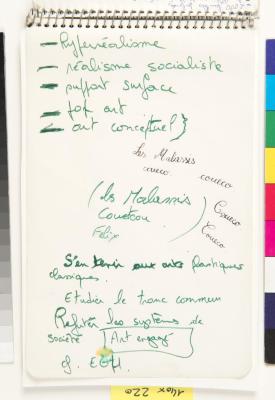 - hyperréalisme
- réalisme socialiste
- support surface
- art
- art conceptuel }
Les Malassis
cueco cueco
(les Malassis
Cueco
Cueco
Félix
S'en tenir aux arts plastiques
classiques.
Etudier le tronc commun
Refuter les systèmes de
société Art engagé
cf.
140x220